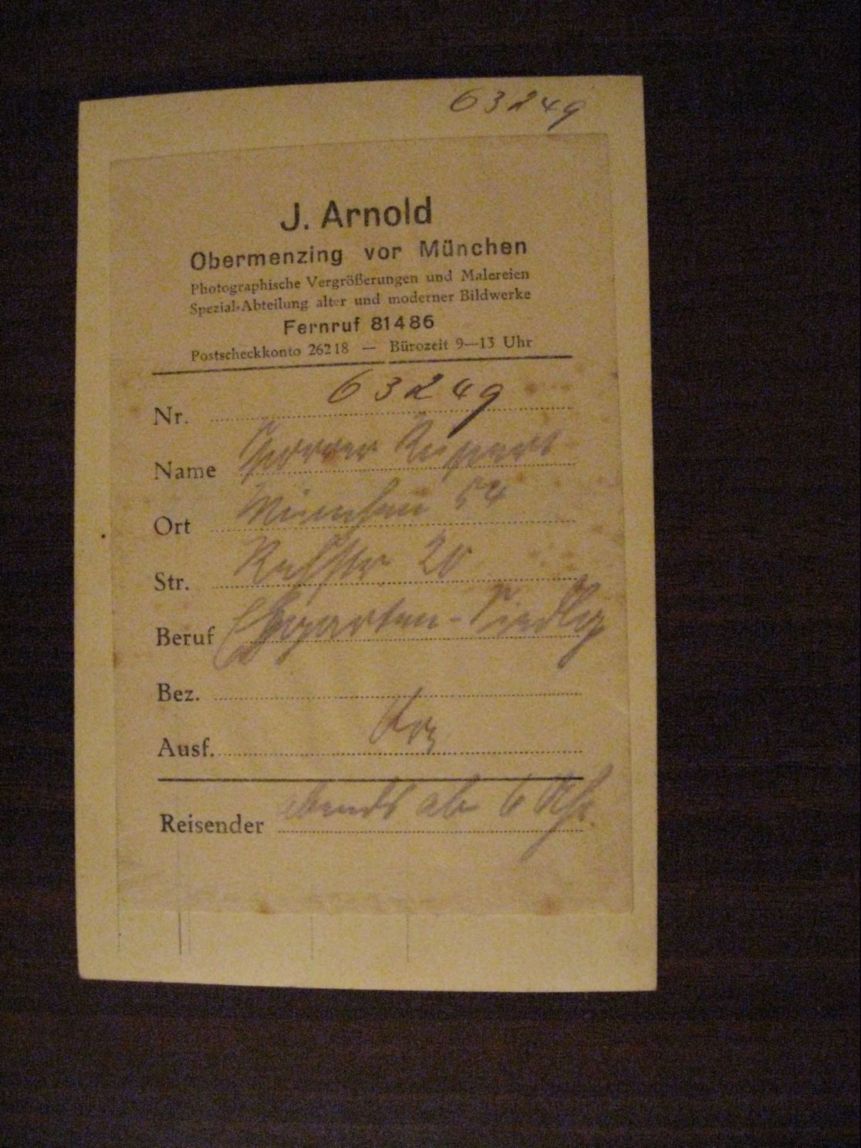 63249
J. Arnold
Obermenzing vor München
Photographische Vergrößerungen und Malereien
Spezial-Abteilung alter und moderner Bildwerke
Fernruf 81486
Postscheckkonto 26218 — Bürozeit 9—13 Uhr
Nr. 63249
Name
Ort München 54
Str. 20
Beruf
Bez.
Ausf.
Reisender abends ab 6 Uhr.